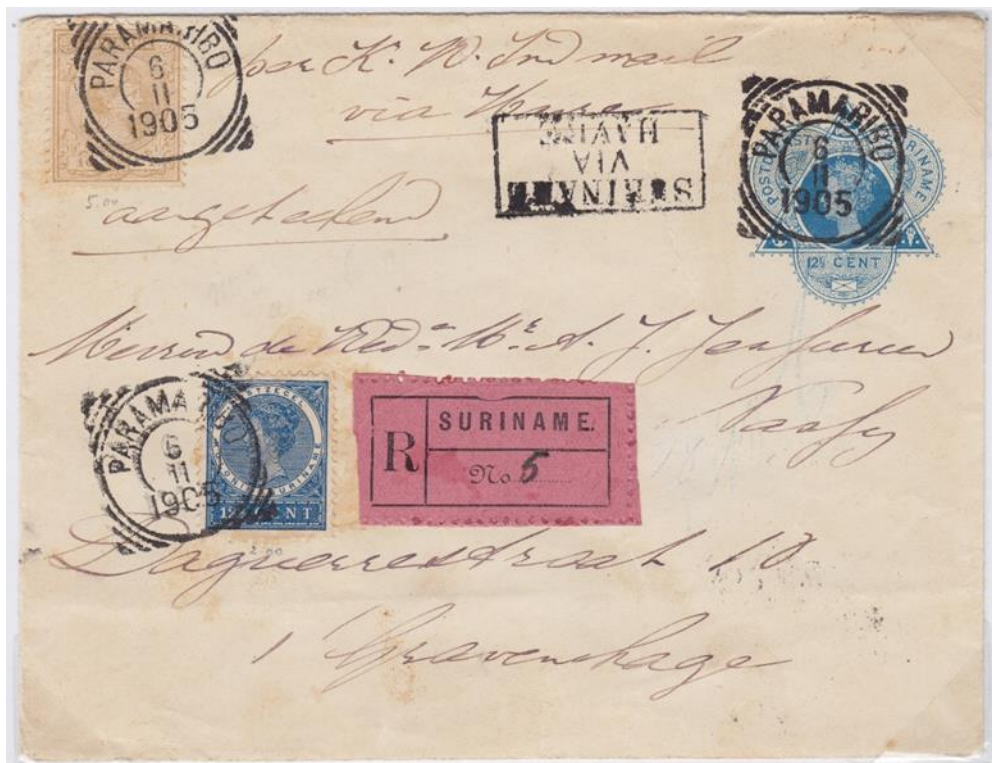 PARAMARIBO
6
11
1905
per K. W. Ind mail
via Havre
SURINAME
VIA
HAVRE
PARAMARIBO
6
11
1905
SURINAME
12½ CENT
5.00
aangeteekend
Mevrouw de
A. J.
PARAMARIBO
6
11
1905
CENT
2.00
R
SURINAME.
No 5
Daguerrestraat 18
's Gravenhage